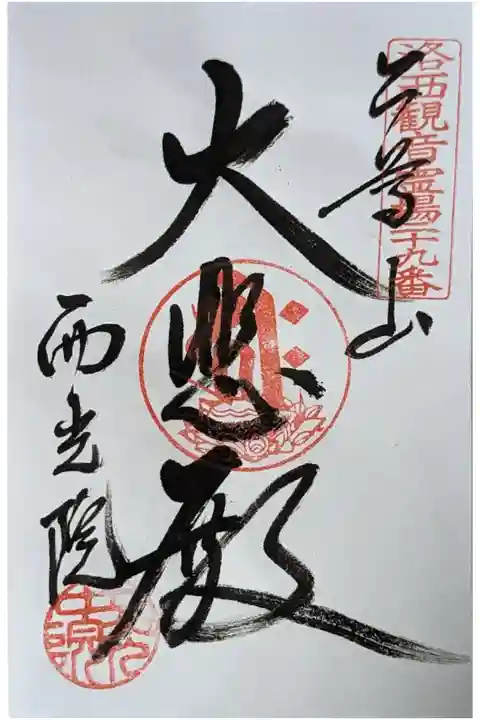 洛西観音霊場二十九番
今尊山
大悲殿
西光院